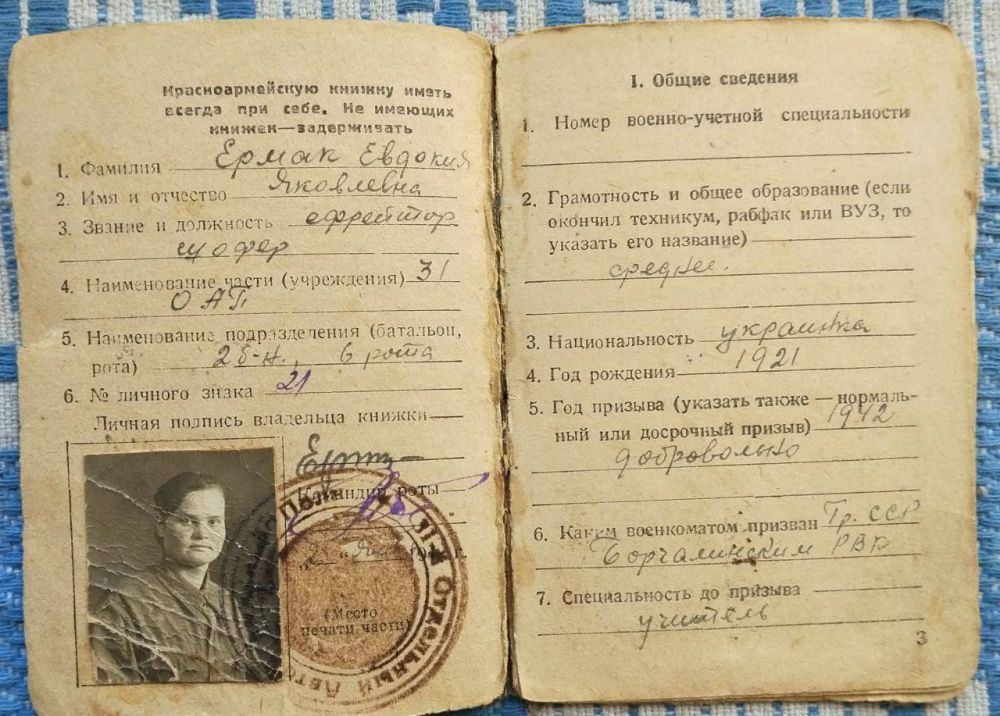 Красноармейскую книжку иметь
всегда при себе. Не имеющих
книжек—задерживать
1. Фамилия Ермак Евдокия
2. Имя и отчество Яковлевна
3. Звание и должность ефрейтор
шофер
4. Наименование части (учреждения) 31
ОАП
5. Наименование подразделения (батальон,
рота) 2 б-н, 6 рота
6. № личного знака 21
Личная подпись владельца книжки
Командир роты
(Место
печати части)
Й Отдельный Авто
Полк
I. Общие сведения
1. Номер военно-учетной специальности
2. Грамотность и общее образование (если
окончил техникум, рабфак или ВУЗ, то
указать его название)
среднее.
3. Национальность украинка
4. Год рождения 1921
5. Год призыва (указать также — нормаль-
ный или досрочный призыв) 1942
добровольно
6. Каким военкоматом призван Гр. ССР
Борчалинским РВК
7. Специальность до призыва
учитель
3